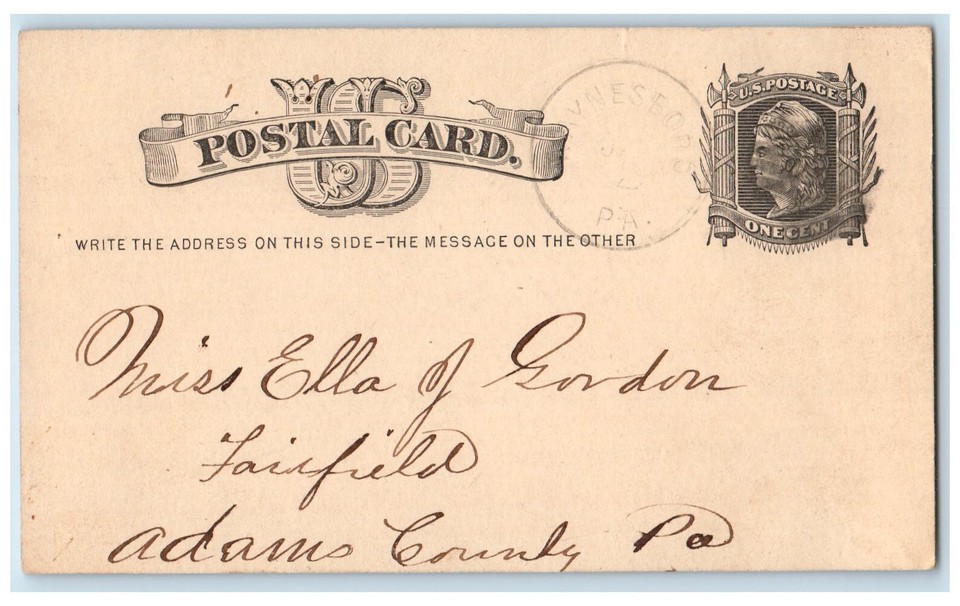 US
POSTAL CARD.
U.S. POSTAGE
ONE CENT
PA.
WRITE THE ADDRESS ON THIS SIDE–THE MESSAGE ON THE OTHER
Miss Ella J Gordon
Fairfield
Adams County Pa